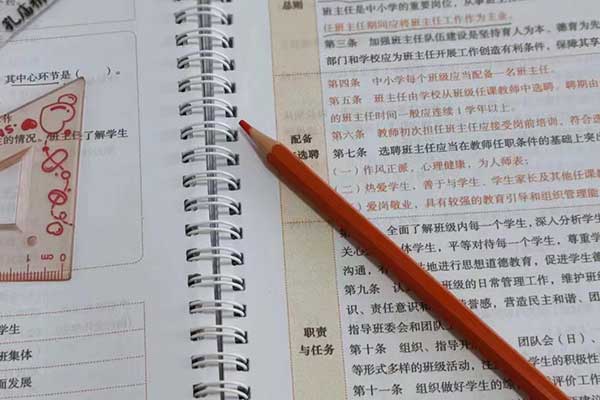 乳店
其中心环节是（　　）。
作
生的情况。班主任了解学生
学生
班集体
面发展
总则
班主任是中小学的重要岗位，从事班主任
任班主任期间应将班主任工作作为主业。
第三条　加强班主任队伍建设是坚持育人为本、德育为先
部门和学校应为班主任开展工作创造有利条件，保障其享
配备
选聘
第四条　中小学每个班级应当配备一名班主任。
第五条　班主任由学校从班级任课教师中选聘。聘期由
的班主任时间一般应连续1学年以上。
第六条　教师初次担任班主任应接受岗前培训，符合选
第七条　选聘班主任应当在教师任职条件的基础上突出
（一）作风正派，心理健康，为人师表；
（二）热爱学生，善于与学生、学生家长及其他任课教
（三）爱岗敬业，具有较强的教育引导和组织管理能
职责
与任务
全面了解班级内每一个学生，深入分析学生
关心 体学生，平等对待每一个学生，尊重学
沟通，有 地进行思想道德教育，促进学生德
第九条　认 班级的日常管理工作，维护班级
识、责任意识和 誉感，营造民主和谐、团
指导班委会和团队
第十条　组织、指导开 团队会（日）、
等形式多样的班级活动，注 学生的积极性
第十一条　组织做好学生的综 评价工作